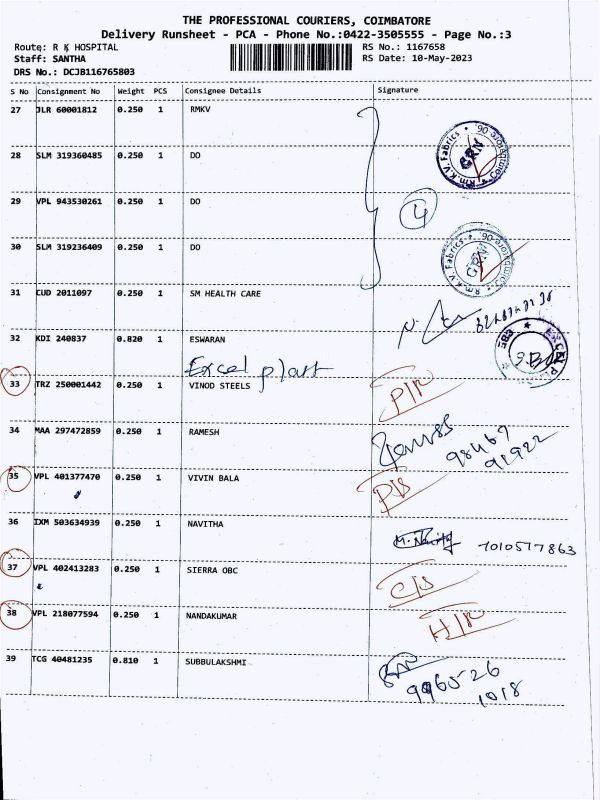 THE PROFESSIONAL COURIERS, COIMBATORE
Delivery Runsheet - PCA - Phone No.:0422-3505555 - Page No.:3
Route: R K HOSPITAL RS No.: 1167658
Staff: SANTHA RS Date: 10-May-2023
DRS No.: DCJB116765803
S No Consignment No Weight PCS Consignee Details Signature
27 JLR 60001812 0.250 1 RMKV
Rm.K.V. Fabrics • Coimbatore 06
GRN
28 SLM 319360485 0.250 1 DO
29 VPL 943530261 0.250 1 DO
4
30 SLM 319236409 0.250 1 DO
Rm.K.V. Fabrics • Coimbatore 06
GRN
31 CUD 2011097 0.250 1 SM HEALTH CARE
32 KDI 240837 0.820 1 ESWARAN
Excel plast
33 TRZ 250001442 0.250 1 VINOD STEELS
34 MAA 297472859 0.250 1 RAMESH
98467
91922
35 VPL 401377470 0.250 1 VIVIN BALA
36 IXM 503634939 0.250 1 NAVITHA
1010577863
37 VPL 402413283 0.250 1 SIERRA OBC
38 VPL 218077594 0.250 1 NANDAKUMAR
39 TCG 40481235 0.810 1 SUBBULAKSHMI
996526
1018